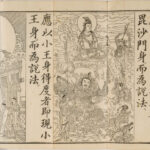 毘沙門身而為說法
應以小王身得度者即現小
王身而為說法